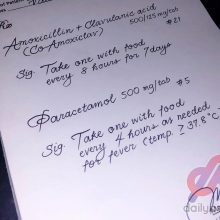 Amoxicillin + Clavulanic acid
(Co-Amoxiclav) 500/125 mg/tab
#21
Sig. Take one with food
every 8 hours for 7 days
Paracetamol 500 mg/tab
#5
Sig. Take one with food
every 4 hours as needed
for fever (temp ≥ 37.8°C)